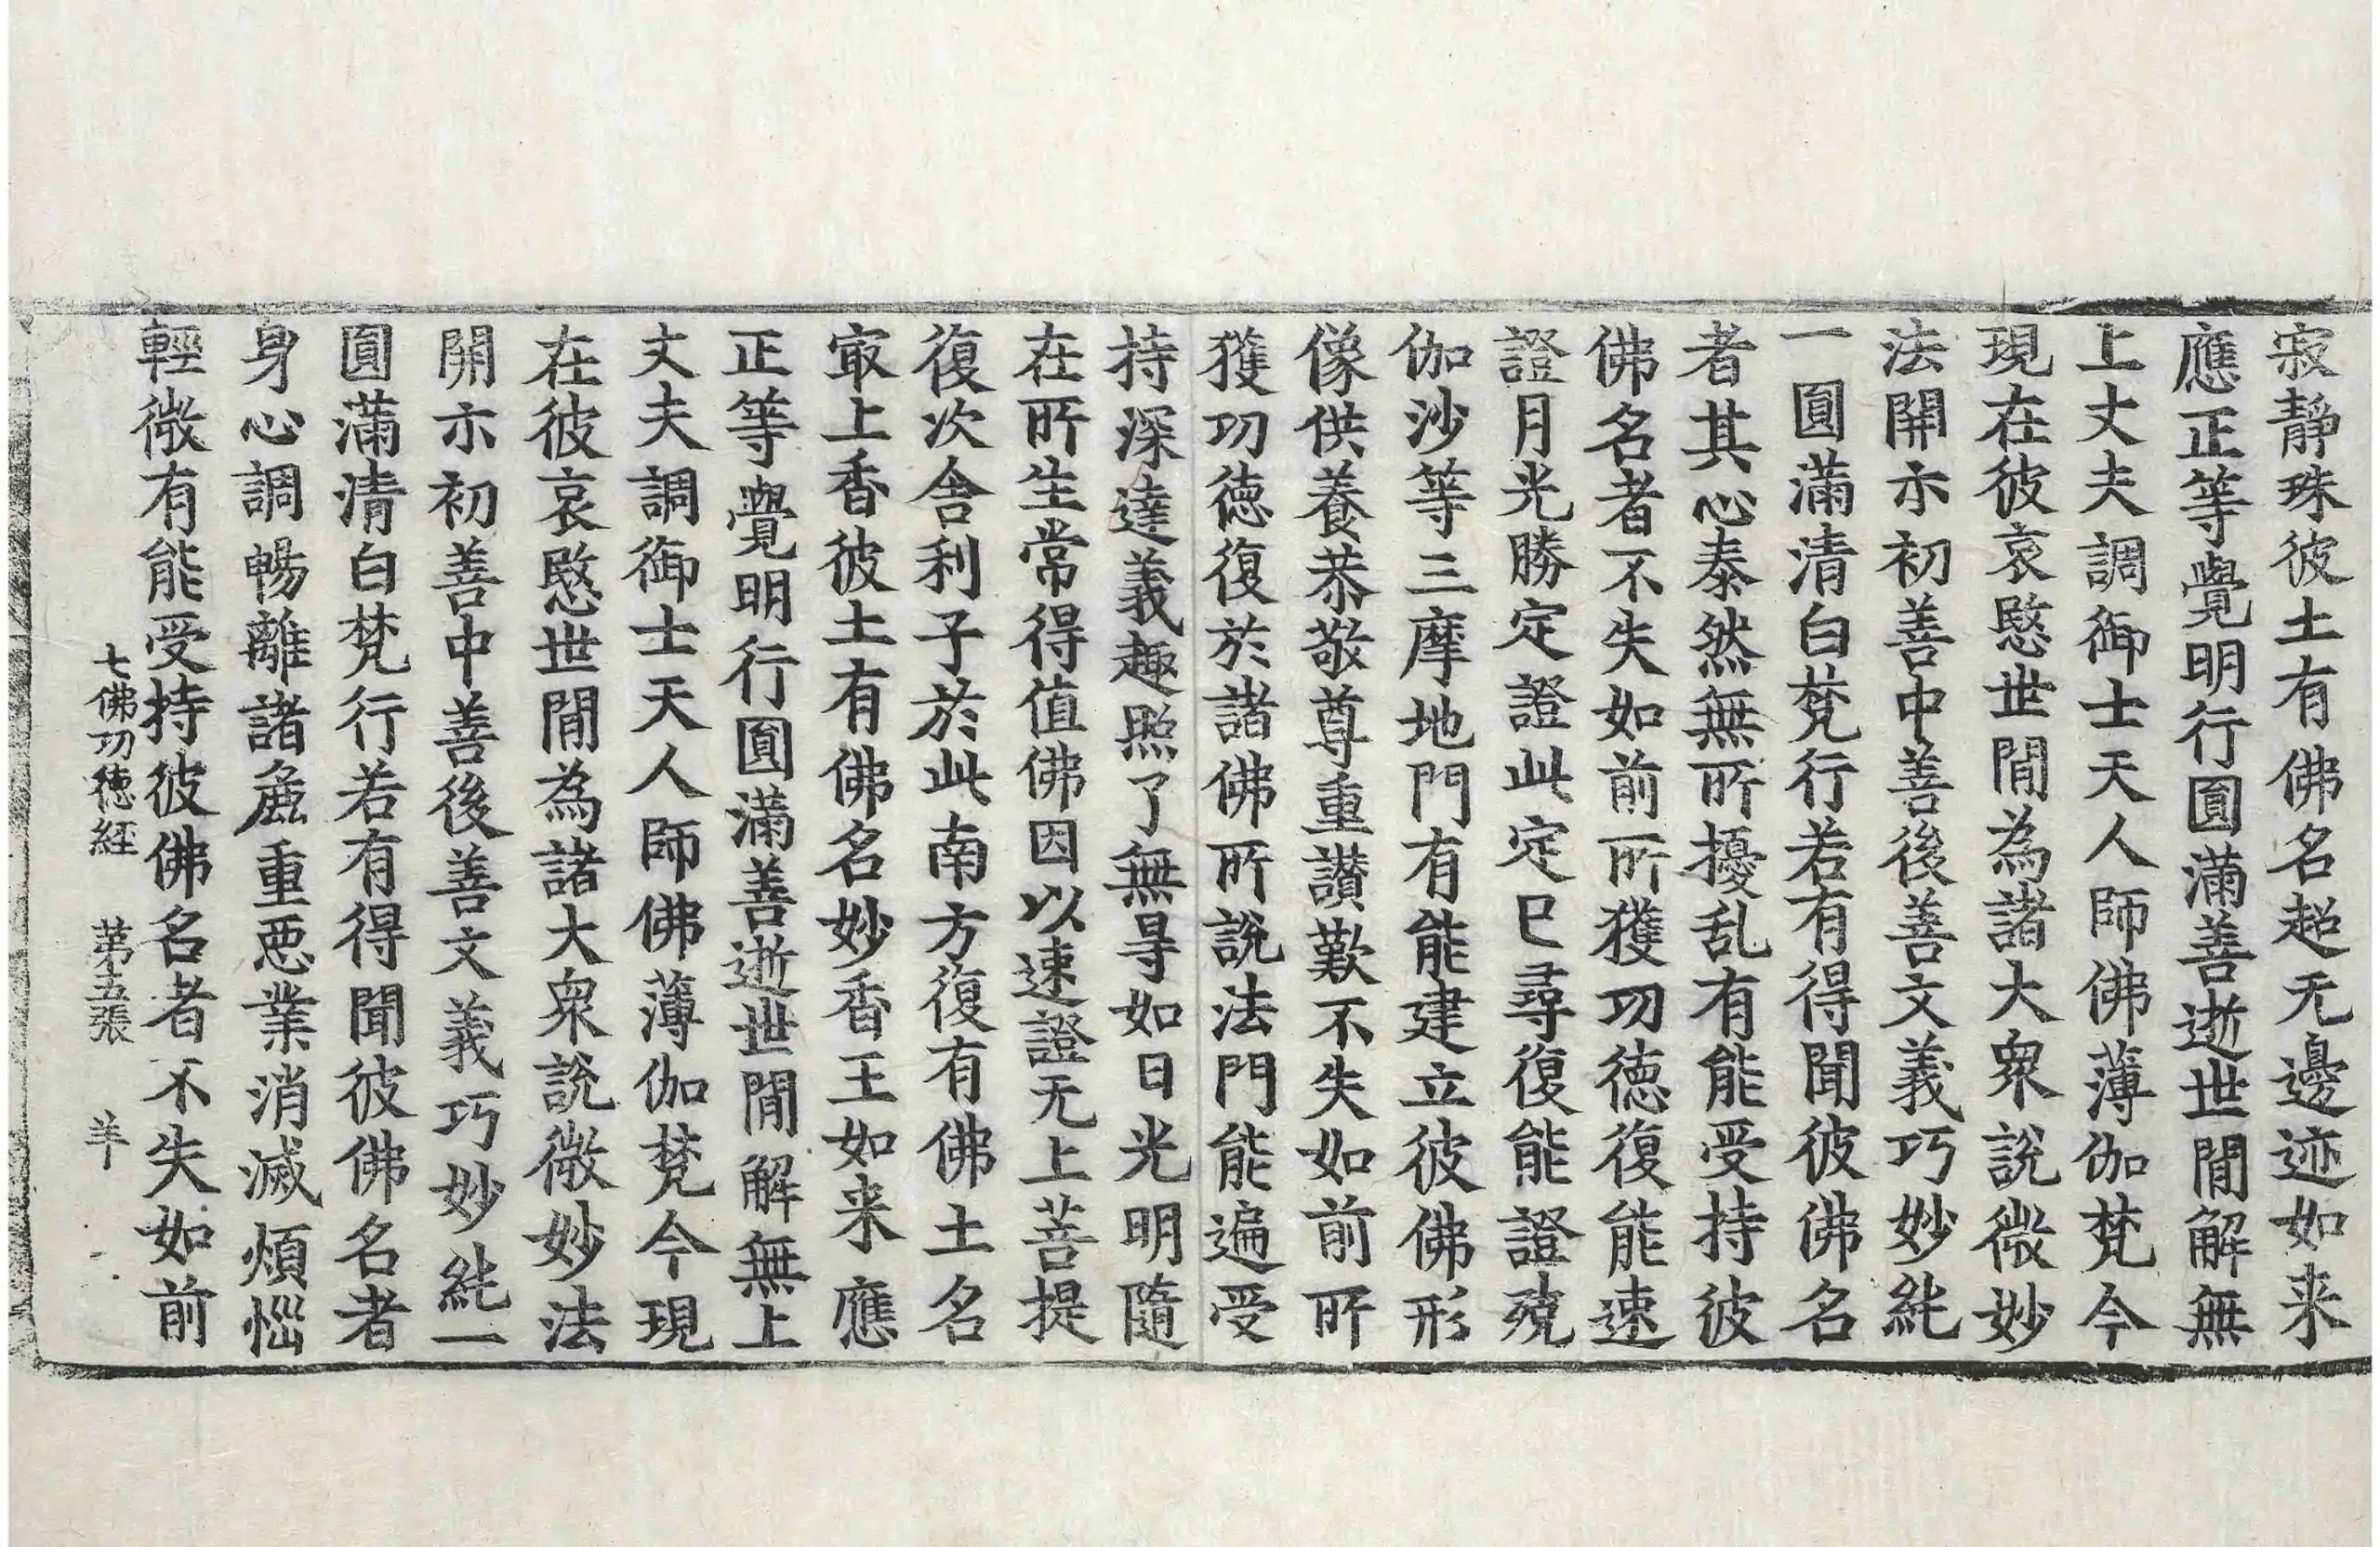 寂靜珠彼土有佛名超无邊迹如来
應正等覺明行圓滿善逝世間解無
上丈夫調御士天人師佛薄伽梵今
現在彼哀愍世間為諸大衆說微妙
法開示初善中善後善文義巧妙純
一圓滿清白梵行若有得聞彼佛名
者其心泰然無所擾乱有能受持彼
佛名者不失如前所獲功德復能速
證月光勝定證此定已尋復能證殑
伽沙等三摩地門有能建立彼佛形
像供養恭敬尊重讃歎不失如前所
獲功德復於諸佛所說法門能遍受
持深達義趣照了無㝵如日光明隨
在所生常得值佛因以速證无上菩提
復次舍利子於此南方復有佛土名
㝡上香彼土有佛名妙香王如来應
正等覺明行圓滿善逝世間解無上
丈夫調御士天人師佛薄伽梵今現
在彼哀愍世間為諸大衆說微妙法
開示初善中善後善文義巧妙純一
圓滿清白梵行若有得聞彼佛名者
身心調暢離諸麁重惡業消滅煩惱
輕微有能受持彼佛名者不失如前
七佛功德経 第五張 羊